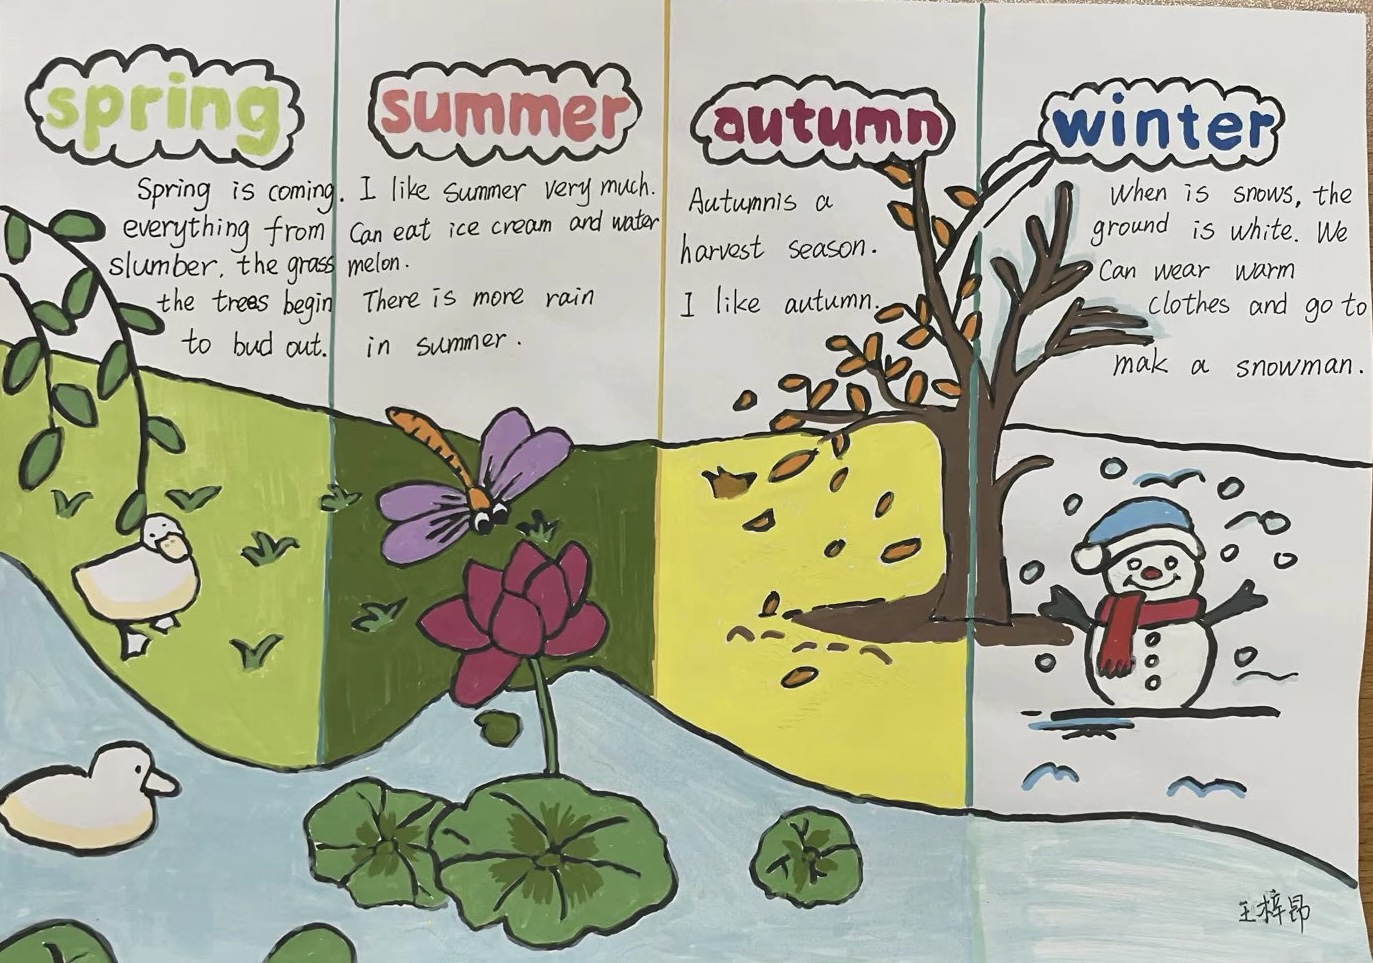 spring
Spring is coming.
everything from
slumber. the grass
the trees begin
to bud out.
summer
I like summer very much.
Can eat ice cream and water
melon.
There is more rain
in summer.
autumn
Autumnis a
harvest season.
I like autumn.
winter
When is snows, the
ground is white. We
Can wear warm
Clothes and go to
mak a snowman.
王梓昂